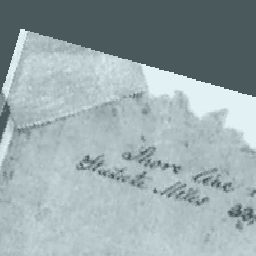 Shore line
Statute Miles 33